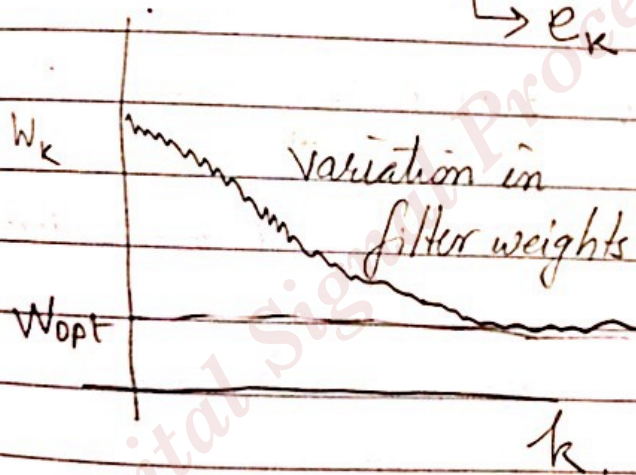 → eₖ
Wₖ
variation in
filter weights
Wopt
k
Digital Signal Proce